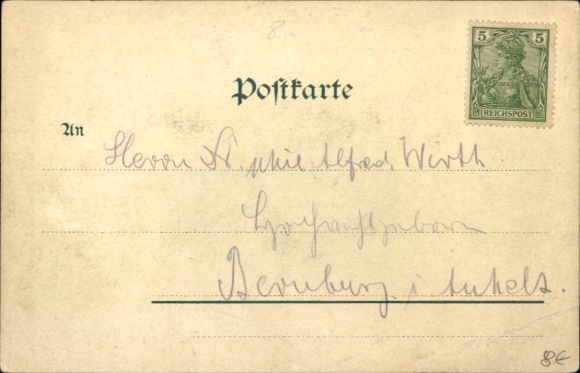 8.
5 5
REICHSPOST
Postkarte
An
Herrn Dr. phil Alfred. Wirth.
Bernburg. i Anhalt.
8.€